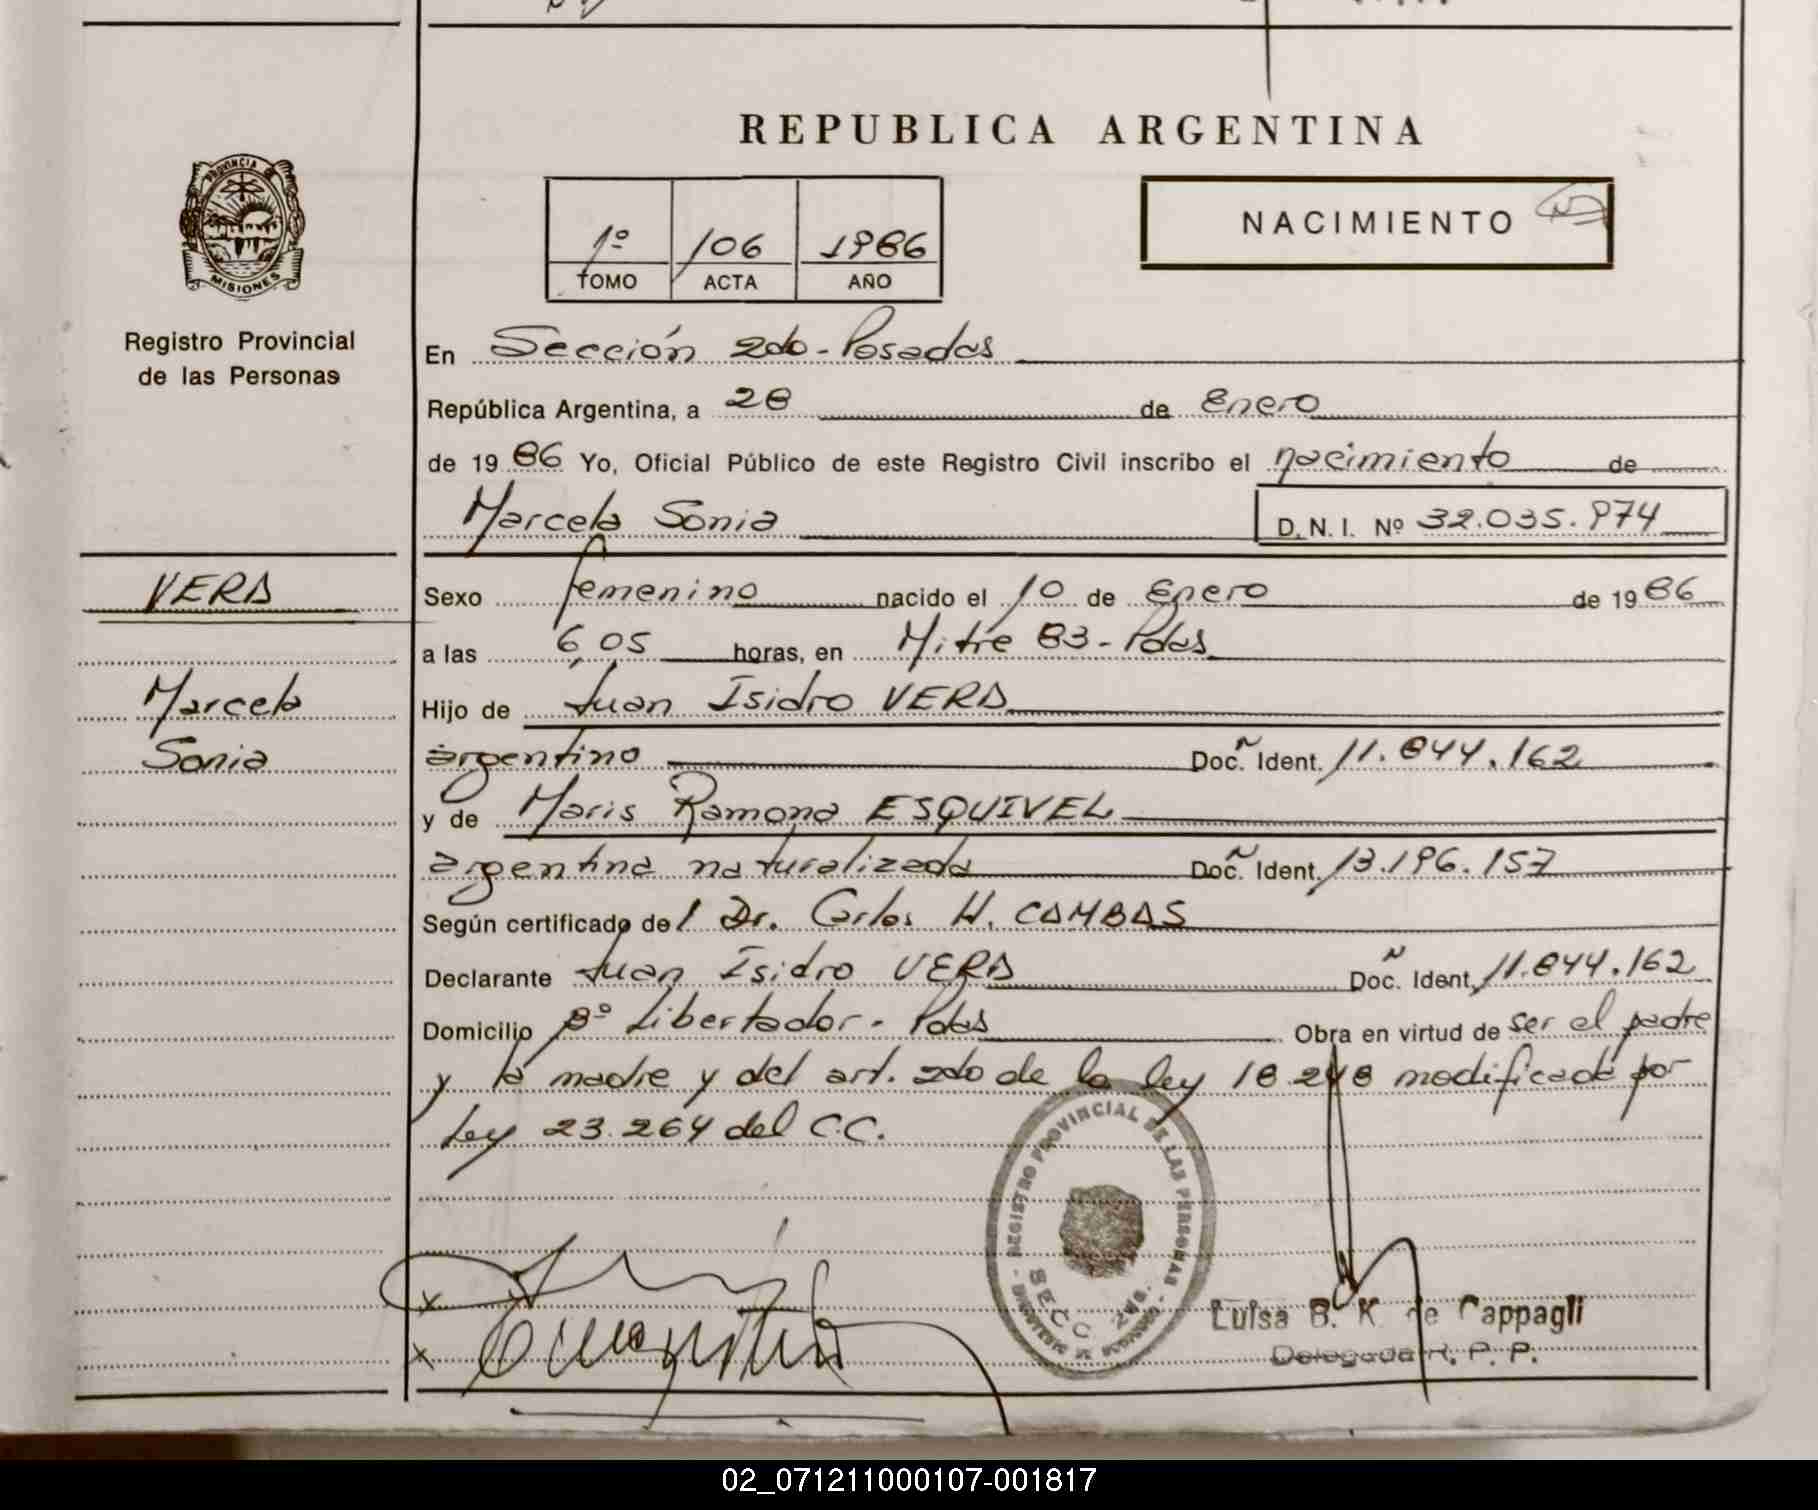 REPUBLICA ARGENTINA
PROVINCIA
MISIONES
Registro Provincial
de las Personas
1º 106 1986
TOMO ACTA AÑO
NACIMIENTO
En Sección 2do - Posadas
República Argentina, a 28 de Enero
de 1986 Yo, Oficial Público de este Registro Civil inscribo el nacimiento de
Marcela Sonia D.N.I. Nº 32.035.974
VERA
Marcela
Sonia
Sexo femenino nacido el 10 de Enero de 1986
a las 6,05 horas, en Mitre 83 - Pdas
Hijo de Juan Isidro VERA
argentino Doc. Ident. 11.844.162
y de Maris Ramona ESQUIVEL
argentina naturalizada Doc. Ident. 13.196.157
Según certificado del Dr. Carlos H. CAMBAS
Declarante Juan Isidro VERA Doc. Ident. 11.844.162
Domicilio Bº Libertador - Pdas Obra en virtud de ser el padre
y la madre y del art. 2do de la ley 18.248 modificada por
Ley 23.264 del C.C.
REGISTRO PROVINCIAL DE LAS PERSONAS
SECC. 2da.
Luisa B. K. de Cappagli
Delegada R. P. P.
02_071211000107-001817